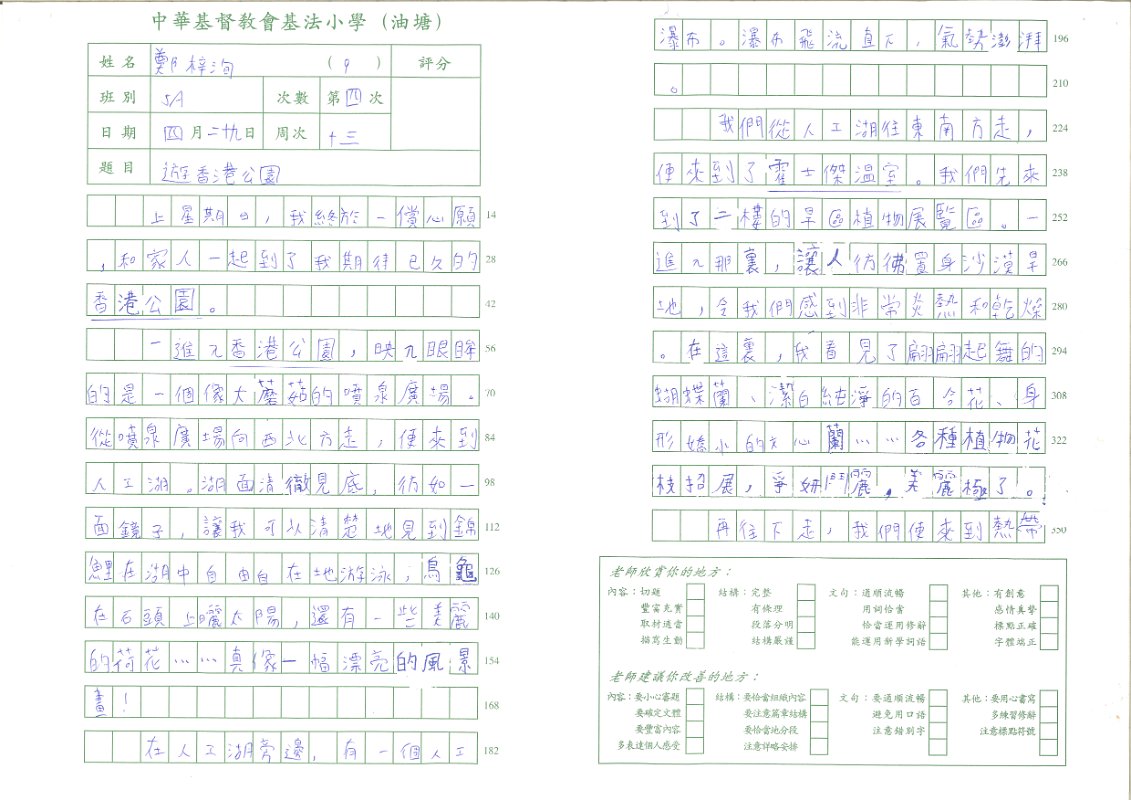 中華基督教會基法小學（油塘）
姓名 鄭梓洵 （9） 評分
班別 5A 次數 第四次
日期 四月二十九日 周次 十三
題目 遊香港公園
上星期日，我終於一償心願 14
，和家人一起到了我期待已久的 28
香港公園。 42
一進入香港公園，映入眼眸 56
的是一個像大蘑菇的噴泉廣場。 70
從噴泉廣場向西北方走，便來到 84
人工湖。湖面清徹見底，彷如一 98
面鏡子，讓我可以清楚地見到錦 112
鯉在湖中自由自在地游泳；烏龜 126
在石頭上曬太陽，還有一些美麗 140
的荷花……真像一幅漂亮的風景 154
畫！ 168
在人工湖旁邊，有一個人工 182
瀑布。瀑布飛流直下，氣勢澎湃 196
。 210
我們從人工湖往東南方走， 224
便來到了霍士傑溫室。我們先來 238
到了二樓的旱區植物展覽區。一 252
進入那裏，讓人彷彿置身沙漠旱 266
地，令我們感到非常炎熱和乾燥 280
。在這裏，我看見了翩翩起舞的 294
蝴蝶蘭、潔白純淨的百合花、身 308
形嬌小的文心蘭……各種植物花 322
枝招展，爭妍鬥麗，美麗極了。
再往下走，我們便來到熱帶 350
老師欣賞你的地方：
內容：切題 結構：完整 文句：通順流暢 其他：有創意
豐富充實 有條理 用詞恰當 感情真摯
取材適當 段落分明 恰當運用修辭 標點正確
描寫生動 結構嚴謹 能運用新學詞語 字體端正
老師建議你改善的地方：
內容：要小心審題 結構：要恰當組織內容 文句：要通順流暢 其他：要用心書寫
要確定文體 要注意篇章結構 避免用口語 多練習修辭
要豐富內容 要恰當地分段 注意錯別字 注意標點符號
多表達個人感受 注意詳略安排